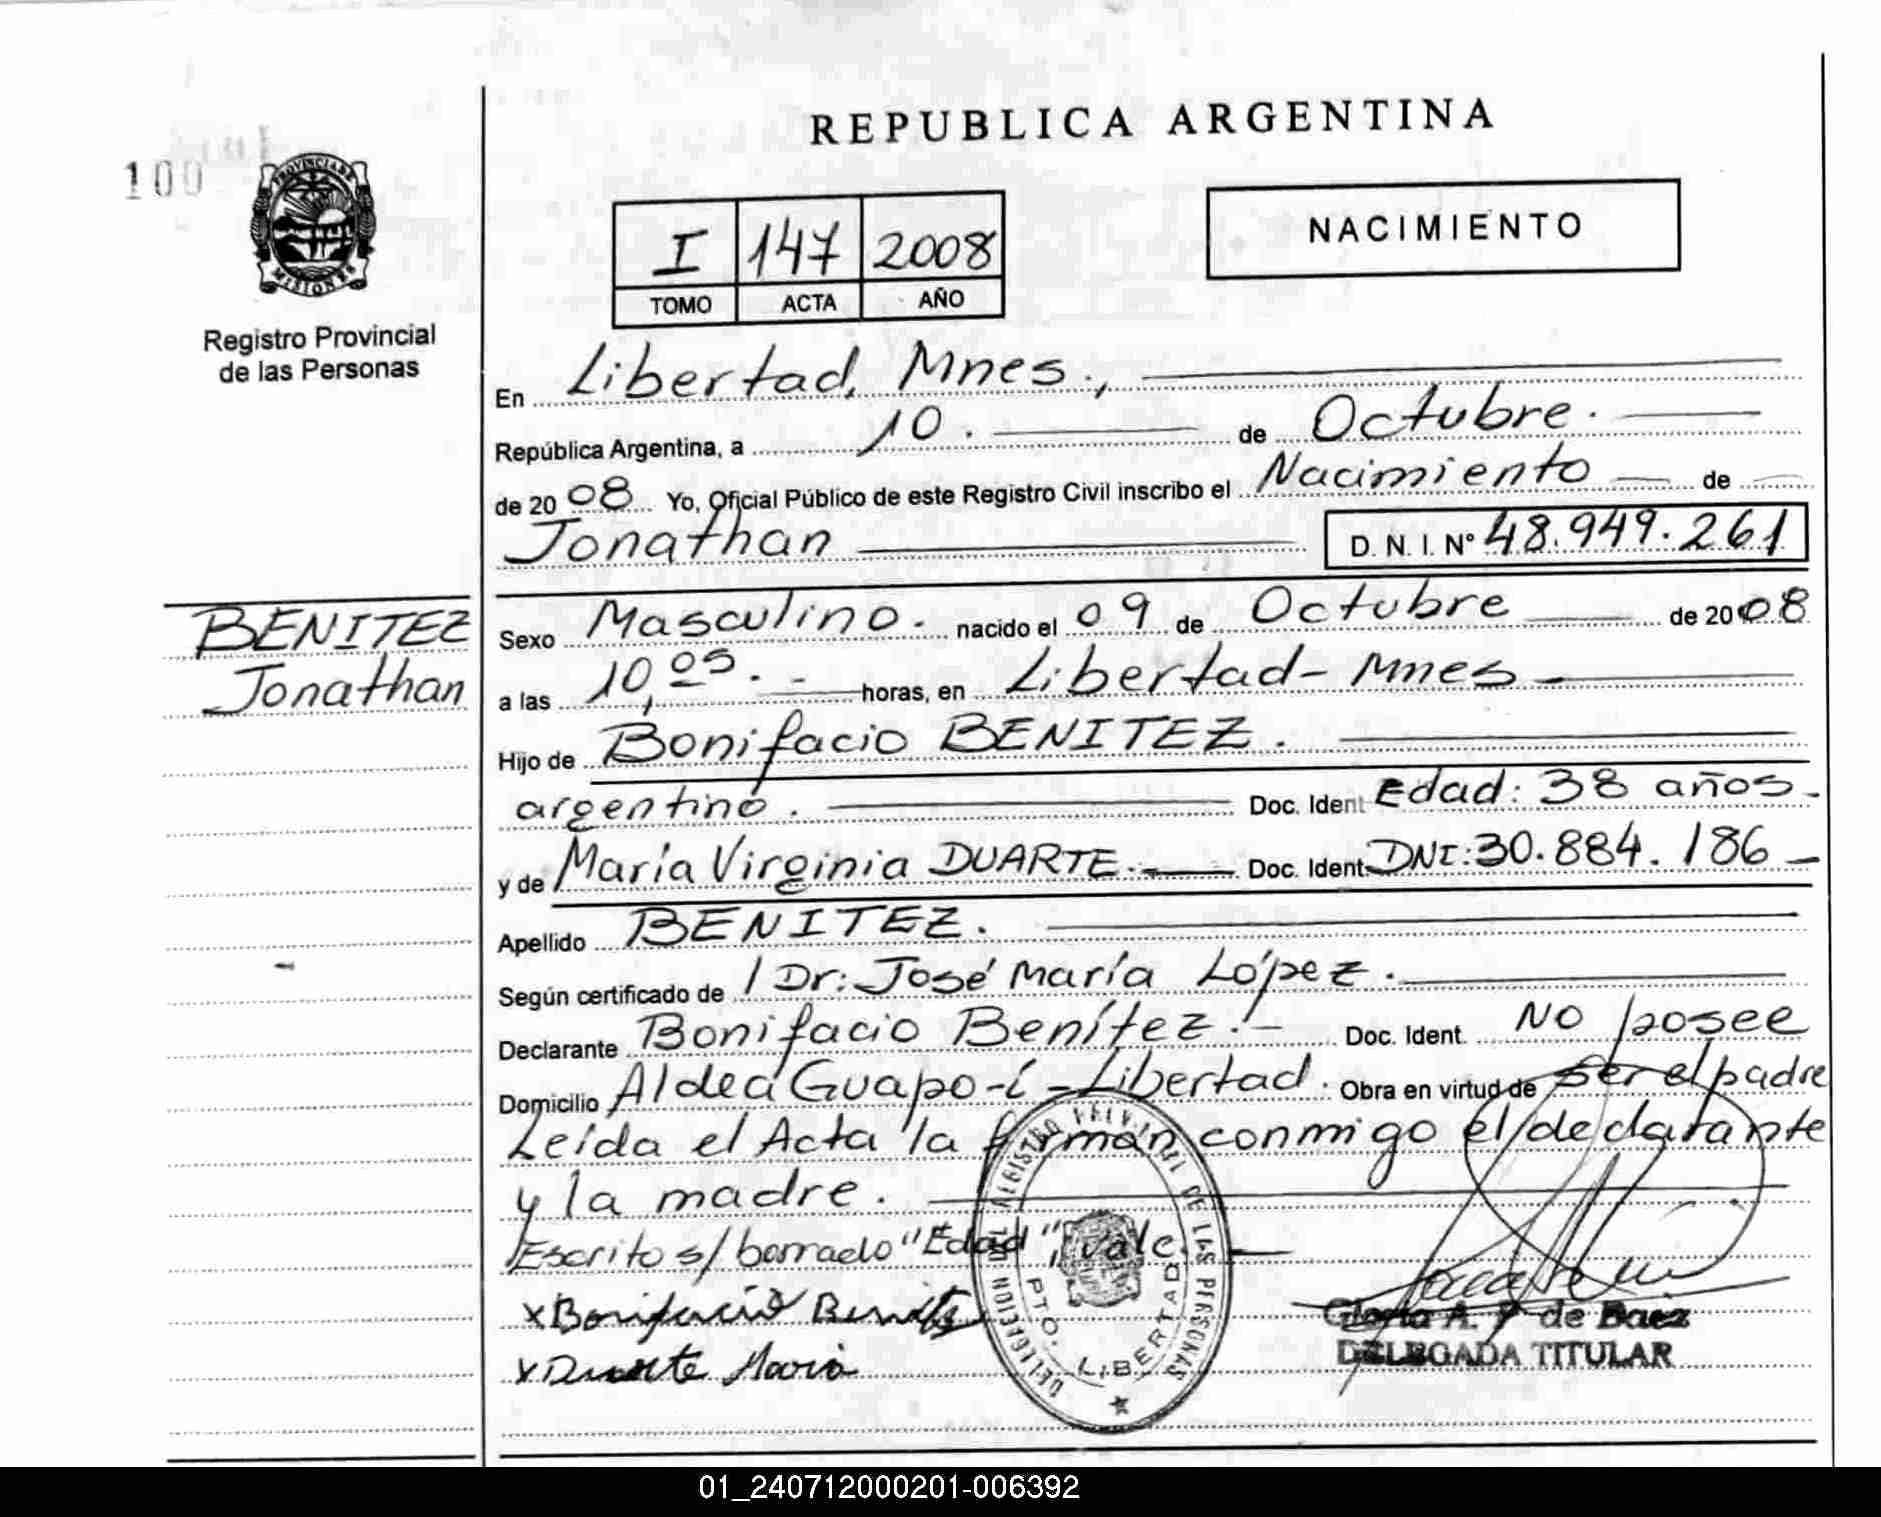 REPUBLICA ARGENTINA
100
PROVINCIA DE MISIONES
Registro Provincial
de las Personas
I 147 2008
TOMO ACTA AÑO
NACIMIENTO
En Libertad, Mnes.,
República Argentina, a 10. de Octubre.
de 20 08 Yo, Oficial Público de este Registro Civil inscribo el Nacimiento de
Jonathan D. N. I. Nº 48.949.261
BENITEZ
Jonathan
Sexo Masculino. nacido el 09 de Octubre de 20 08
a las 10,05. horas, en Libertad - Mnes
Hijo de Bonifacio BENITEZ.
argentino. Doc. Ident Edad: 38 años.
y de María Virginia DUARTE. Doc. Ident. DNI: 30.884.186
Apellido BENITEZ.
Según certificado de Dr: José María López.
Declarante Bonifacio Benítez. Doc. Ident. NO posee
Domicilio Aldea Guapo-í - Libertad. Obra en virtud de ser el padre
Leída el Acta la firman conmigo el declarante
y la madre.
Escrito s/ borrado "Edad", vale.
x Bonifacio Benitez
x Duarte Maria
DELEGACION DEL REGISTRO PROVINCIAL DE LAS PERSONAS
PTO. LIBERTAD
Gloria A. de Baez
DELEGADA TITULAR
01_240712000201-006392